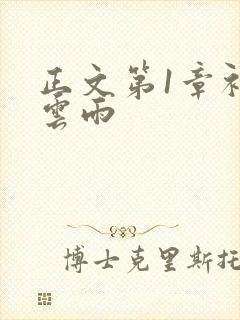 正文第1章
雲雨
博士克里斯托